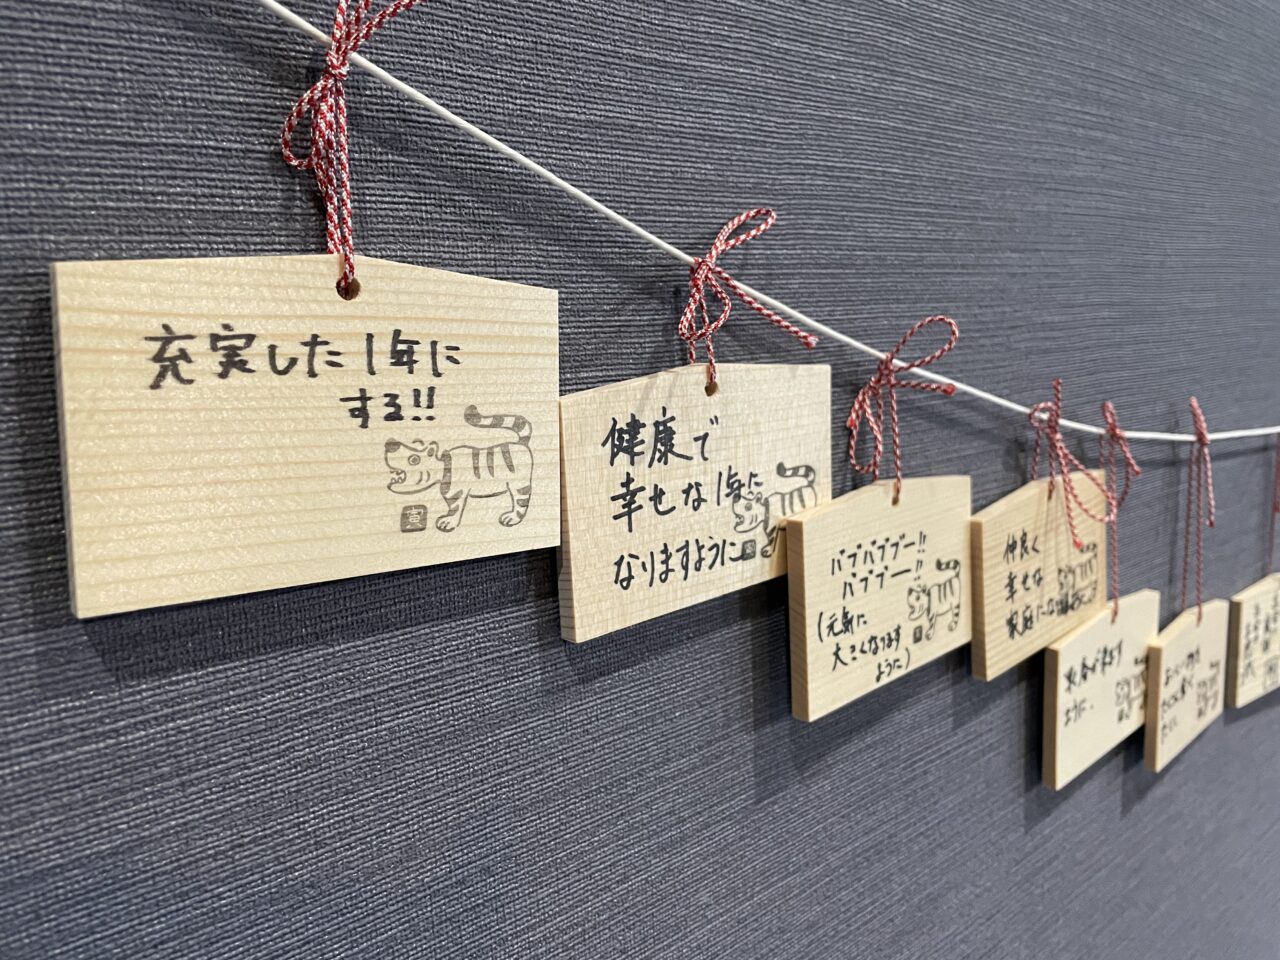 充実した1年に
する!!
寅
健康で
幸せな1年に
なりますように
バブバブブー!!
バブブー!!
(元気に
大きくなります
ように)
仲良く
幸せな
家庭にな
ように.